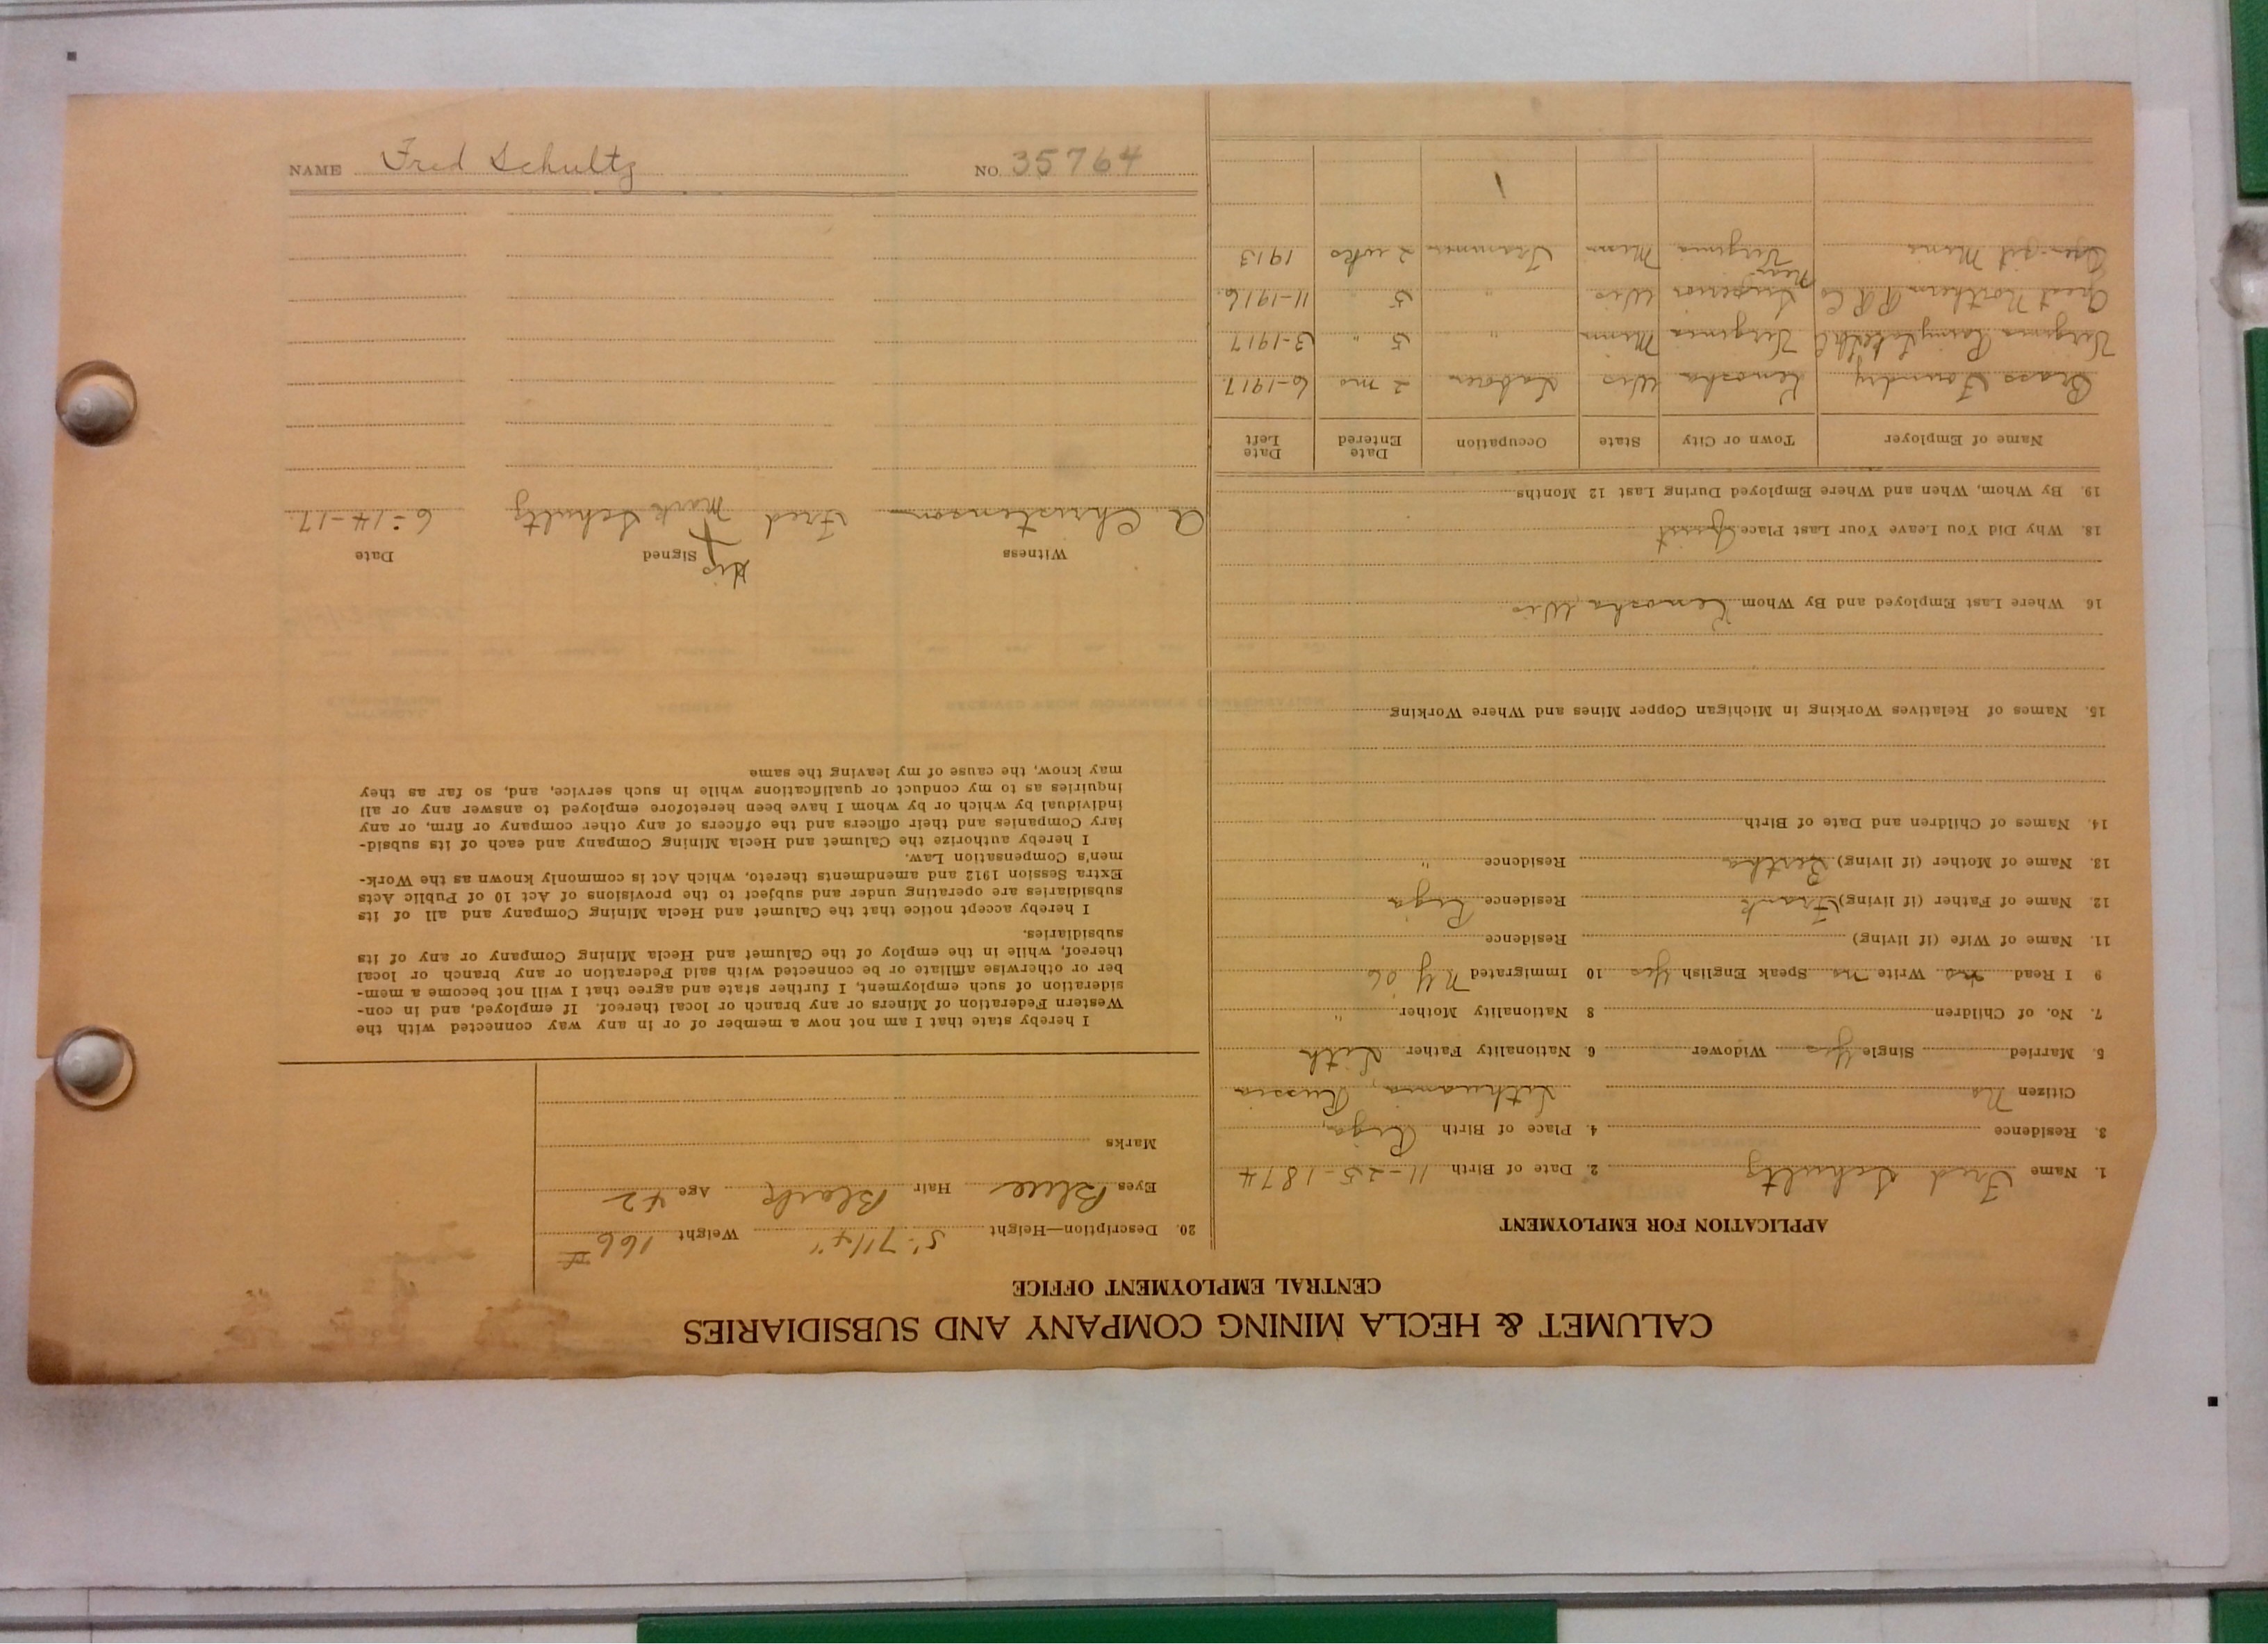 CALUMET & HECLA MINING COMPANY AND SUBSIDIARIES
CENTRAL EMPLOYMENT OFFICE
APPLICATION FOR EMPLOYMENT
1. Name Fred Schultz 2. Date of Birth 11-25-1874
3. Residence 4. Place of Birth Riga,
Citizen No Lithuania, Russia
5. Married Single Yes Widower 6. Nationality Father Lith
7. No. of Children 8 Nationality Mother "
9 I Read no Write no Speak English Yes 10 Immigrated N.Y. 06
11. Name of Wife (if living) Residence
12. Name of Father (if living) Frank Residence Riga
13. Name of Mother (if living) Bertha Residence "
14. Names of Children and Date of Birth
15. Names of Relatives Working in Michigan Copper Mines and Where Working
16 Where Last Employed and By Whom Kenosha, Wis
18. Why Did You Leave Your Last Place Quit
19. By Whom, When and Where Employed During Last 12 Months
Name of Employer Town or City State Occupation Date Entered Date Left
Brass Foundry Kenosha Wis Laborer 2 mo 6-1917
Virginia Rainy Lake Virginia Minn " 5 " 3-1917
Great Northern R.R. Co Superior Wis " 5 " 11-1916
Open-pit Mine near Virginia Minn Trammer 2 wks 1913
20. Description—Height 5'. 7 1/4" Weight 166 #
Eyes Blue Hair Black Age 42
Marks
I hereby state that I am not now a member of or in any way connected with the
Western Federation of Miners or any branch or local thereof. If employed, and in con-
sideration of such employment, I further state and agree that I will not become a mem-
ber or otherwise affiliate or be connected with said Federation or any branch or local
thereof, while in the employ of the Calumet and Hecla Mining Company or any of its
subsidiaries.
I hereby accept notice that the Calumet and Hecla Mining Company and all of its
subsidiaries are operating under and subject to the provisions of Act 10 of Public Acts
Extra Session 1912 and amendments thereto, which Act is commonly known as the Work-
men's Compensation Law.
I hereby authorize the Calumet and Hecla Mining Company and each of its subsid-
iary Companies and their officers and the officers of any other company or firm, or any
individual by which or by whom I have been heretofore employed to answer any or all
inquiries as to my conduct or qualifications while in such service, and, so far as they
may know, the cause of my leaving the same
Witness Signed Date
his
A. Christenson Fred X Schultz 6-14-17.
mark
NAME Fred Schultz NO. 35764